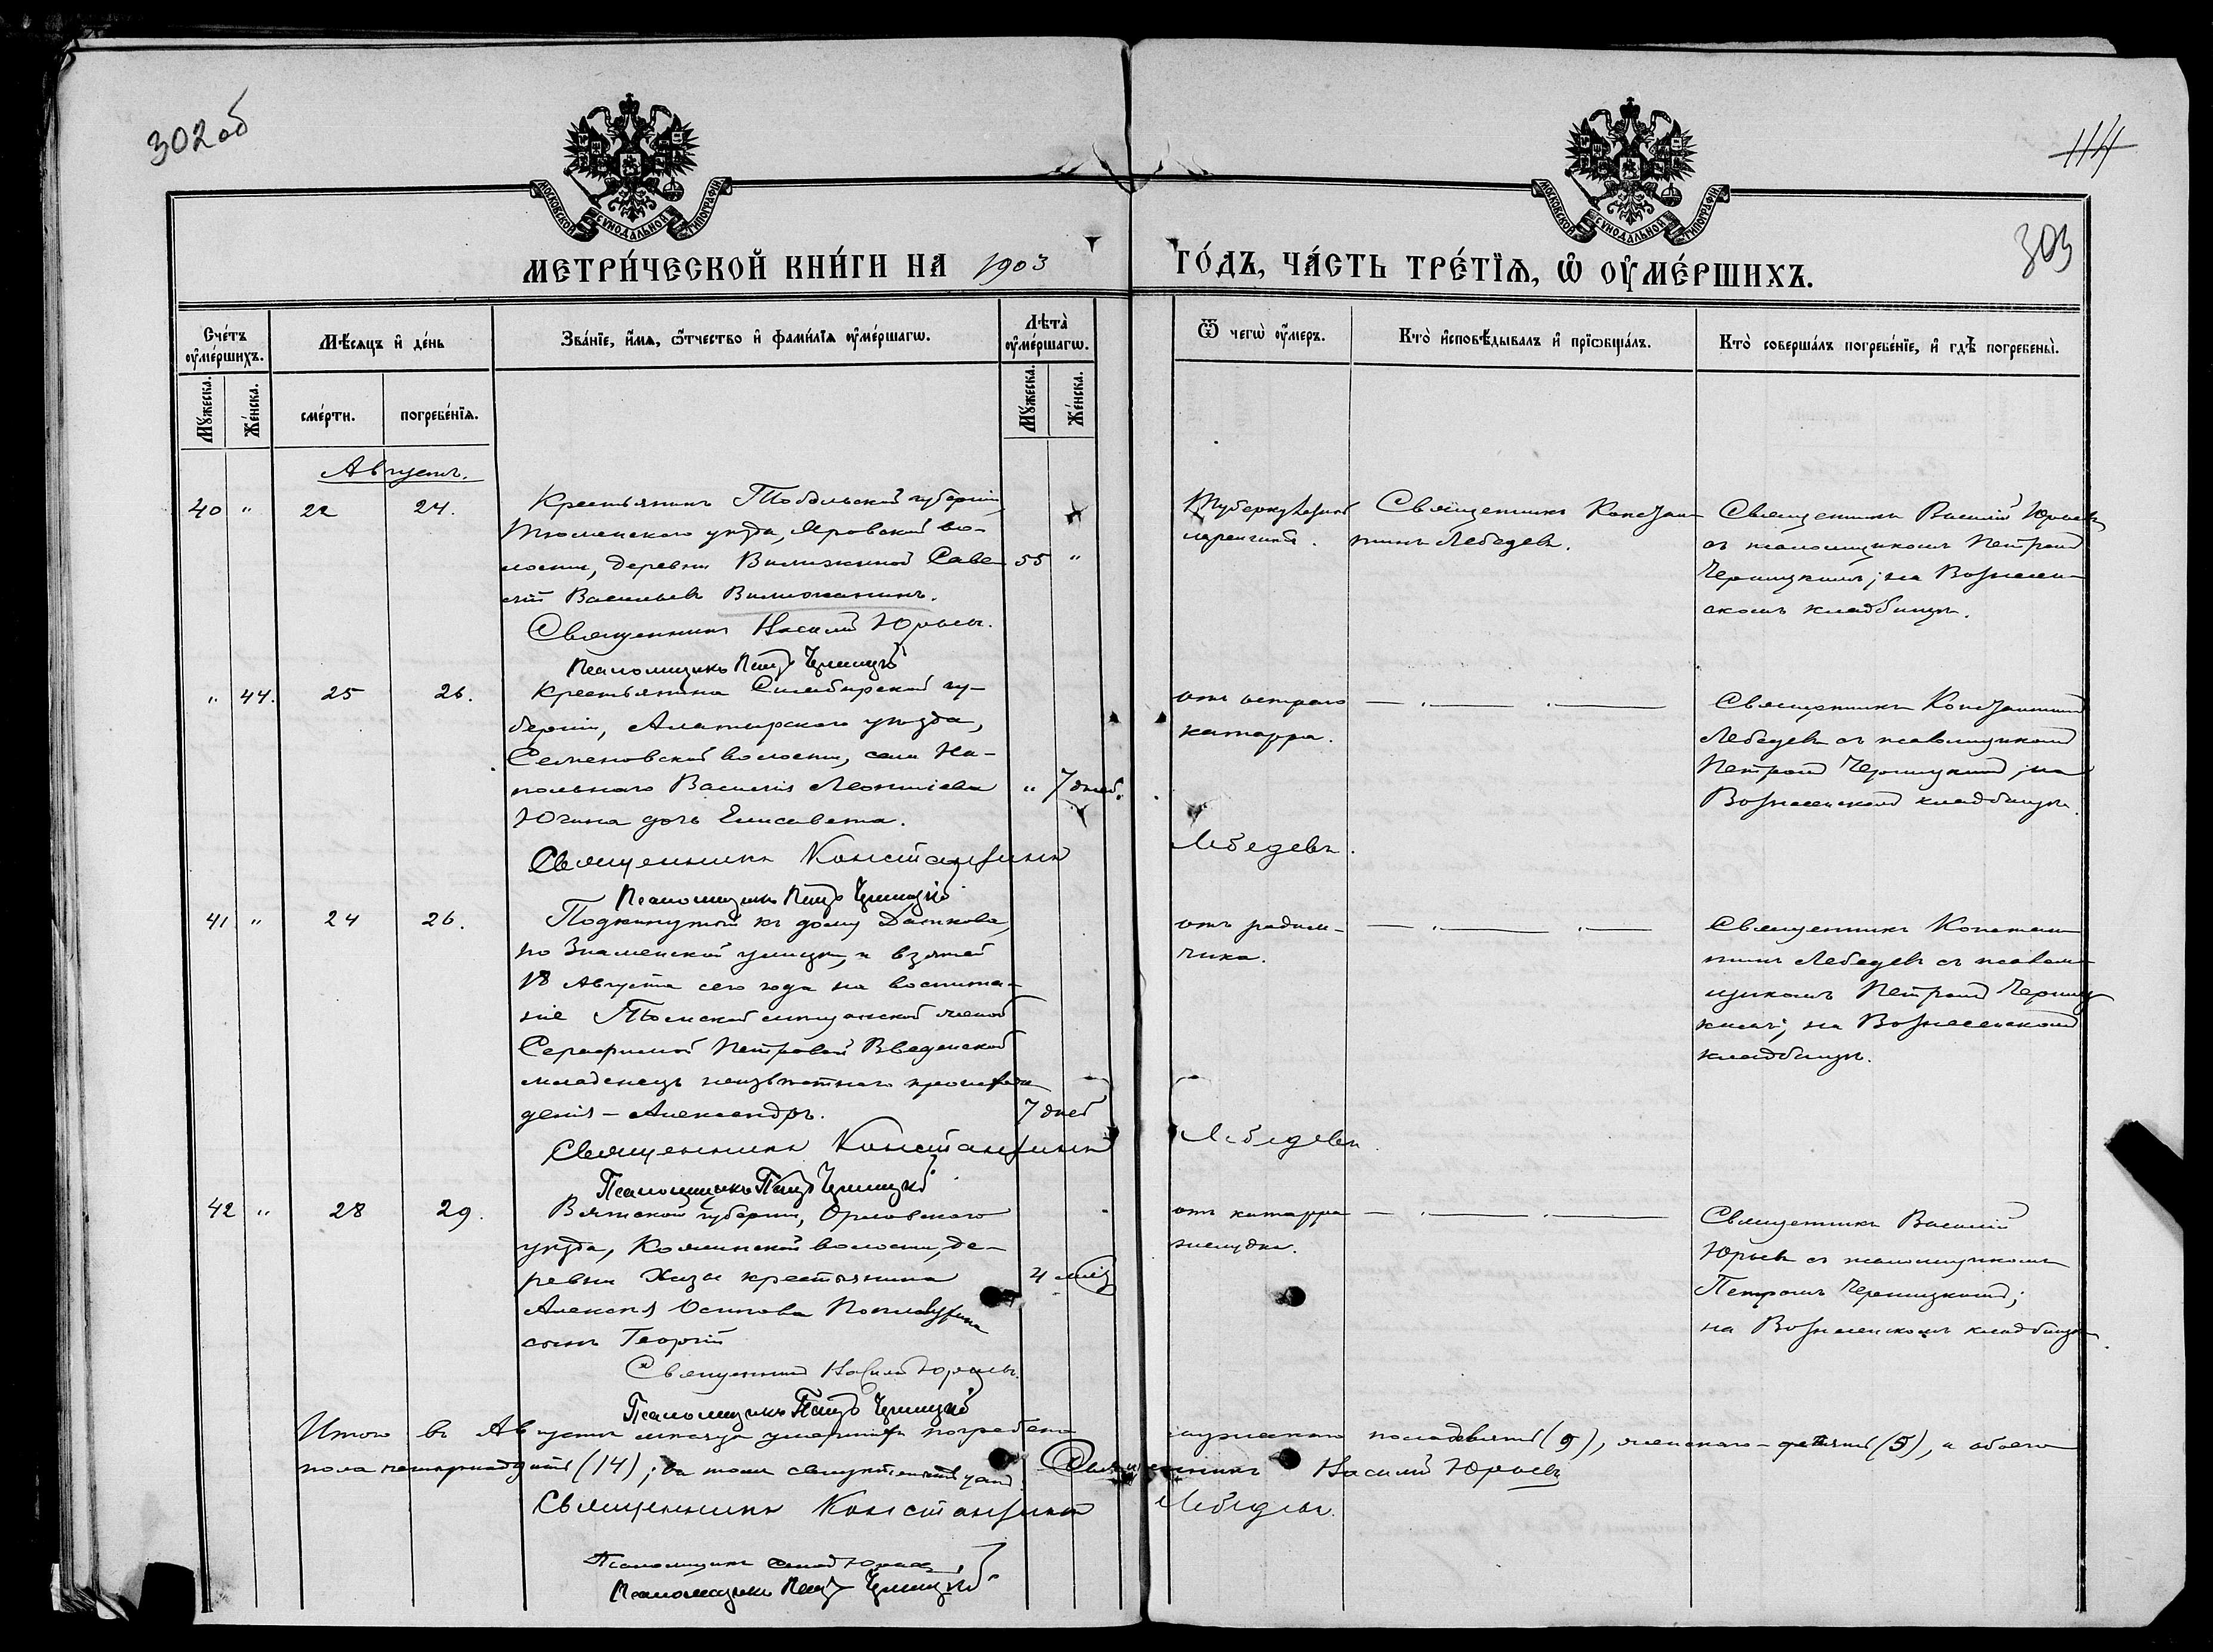 302 об
114
303
МОСКОВСКОЙ СѴНОДАЛЬНОЙ ТИПОГРАФІИ
МОСКОВСКОЙ СѴНОДАЛЬНОЙ ТИПОГРАФІИ
МЕТРИ́ЧЕСКОЙ КНИ́ГИ НА 1903
ГО́ДЪ, ЧА́СТЬ ТРЕ́ТІѦ, Ѡ҆ ОУ҆МЕ́РШИХЪ.
Сче́тъ оу҆ме́ршихъ.
Мѣ́сяцъ и҆ де́нь
Зва́нїе, и҆́мѧ, ѻ҆́тчество и҆ фами́лїѧ оу҆ме́ршагѡ.
Лѣта̀ оу҆ме́ршагѡ.
Ѿ чегѡ̀ оу҆́меръ.
Кто̀ и҆сповѣ́дывалъ и҆ прїѡбща́лъ.
Кто̀ соверша́лъ погребе́нїе, и҆ гдѣ̀ погребены̀.
Мꙋ́жеска.
Же́нска.
сме́рти.
погребе́нїѧ.
Мꙋ́жеска.
Же́нска.
Августъ.
40 " 22 24.
Крестьянинъ Тобольской губерніи,
Тюменскаго уѣзда, Яровской во-
лости, деревни Вилижиной Саве-
55 "
тій Васильевъ Вилижанинъ.
Священникъ Василій Юрьевъ.
Псаломщикъ Петръ Черницкій
Туберкулезный
ларингитъ.
Священникъ Констан-
тинъ Лебедевъ.
Священникъ Василій Юрьевъ
съ псаломщикомъ Петромъ
Черницкимъ; на Вознесен-
скомъ кладбищѣ.
" 44. 25 26.
Крестьянина Симбирской гу-
берніи, Алатырскаго уѣзда,
Семеновской волости, села На-
польнаго Василія Леонтіева
" 7 дней.
Югина дочь Елисавета.
Священникъ Константинъ
Лебедевъ.
Псаломщикъ Петръ Черницкій
отъ остраго
катарра.
Священникъ Константинъ
Лебедевъ съ псаломщикомъ
Петромъ Черницкимъ; на
Вознесенскомъ кладбищѣ.
41 " 24 26.
Подкинутый къ дому
по Знаменской улицѣ, и взятый
18 Августа сего года на воспита-
ніе Томской мѣщанской женой
Серафимой Петровой Введенской
младенецъ неизвѣстнаго происхож-
денія – Александръ.
7 дней
Священникъ Константинъ
Лебедевъ.
Псаломщикъ Петръ Черницкій
отъ родим-
чика.
Священникъ Констан-
тинъ Лебедевъ съ псалом-
щикомъ Петромъ Черниц-
кимъ; на Вознесенскомъ
кладбищѣ.
42 " 28 29.
Вятской губерніи, Орловскаго
уѣзда, волости, де-
ревни крестьянина
4 мѣс
Алексѣя Осипова
сынъ Георгій
Священникъ Василій Юрьевъ.
Псаломщикъ Петръ Черницкій
отъ катарра
желудка.
Священникъ Василій
Юрьевъ съ псаломщикомъ
Петромъ Черницкимъ;
на Вознесенскомъ кладбищѣ.
Итого въ Августѣ мѣсяцѣ умершихъ погребено мужескаго пола девять (9), женскаго – пять (5), и обоего
пола четырнадцать (14); въ томъ свидѣтельствуемъ: Священникъ Василій Юрьевъ
Священникъ Константинъ Лебедевъ.
Псаломщикъ
Псаломщикъ Петръ Черницкій